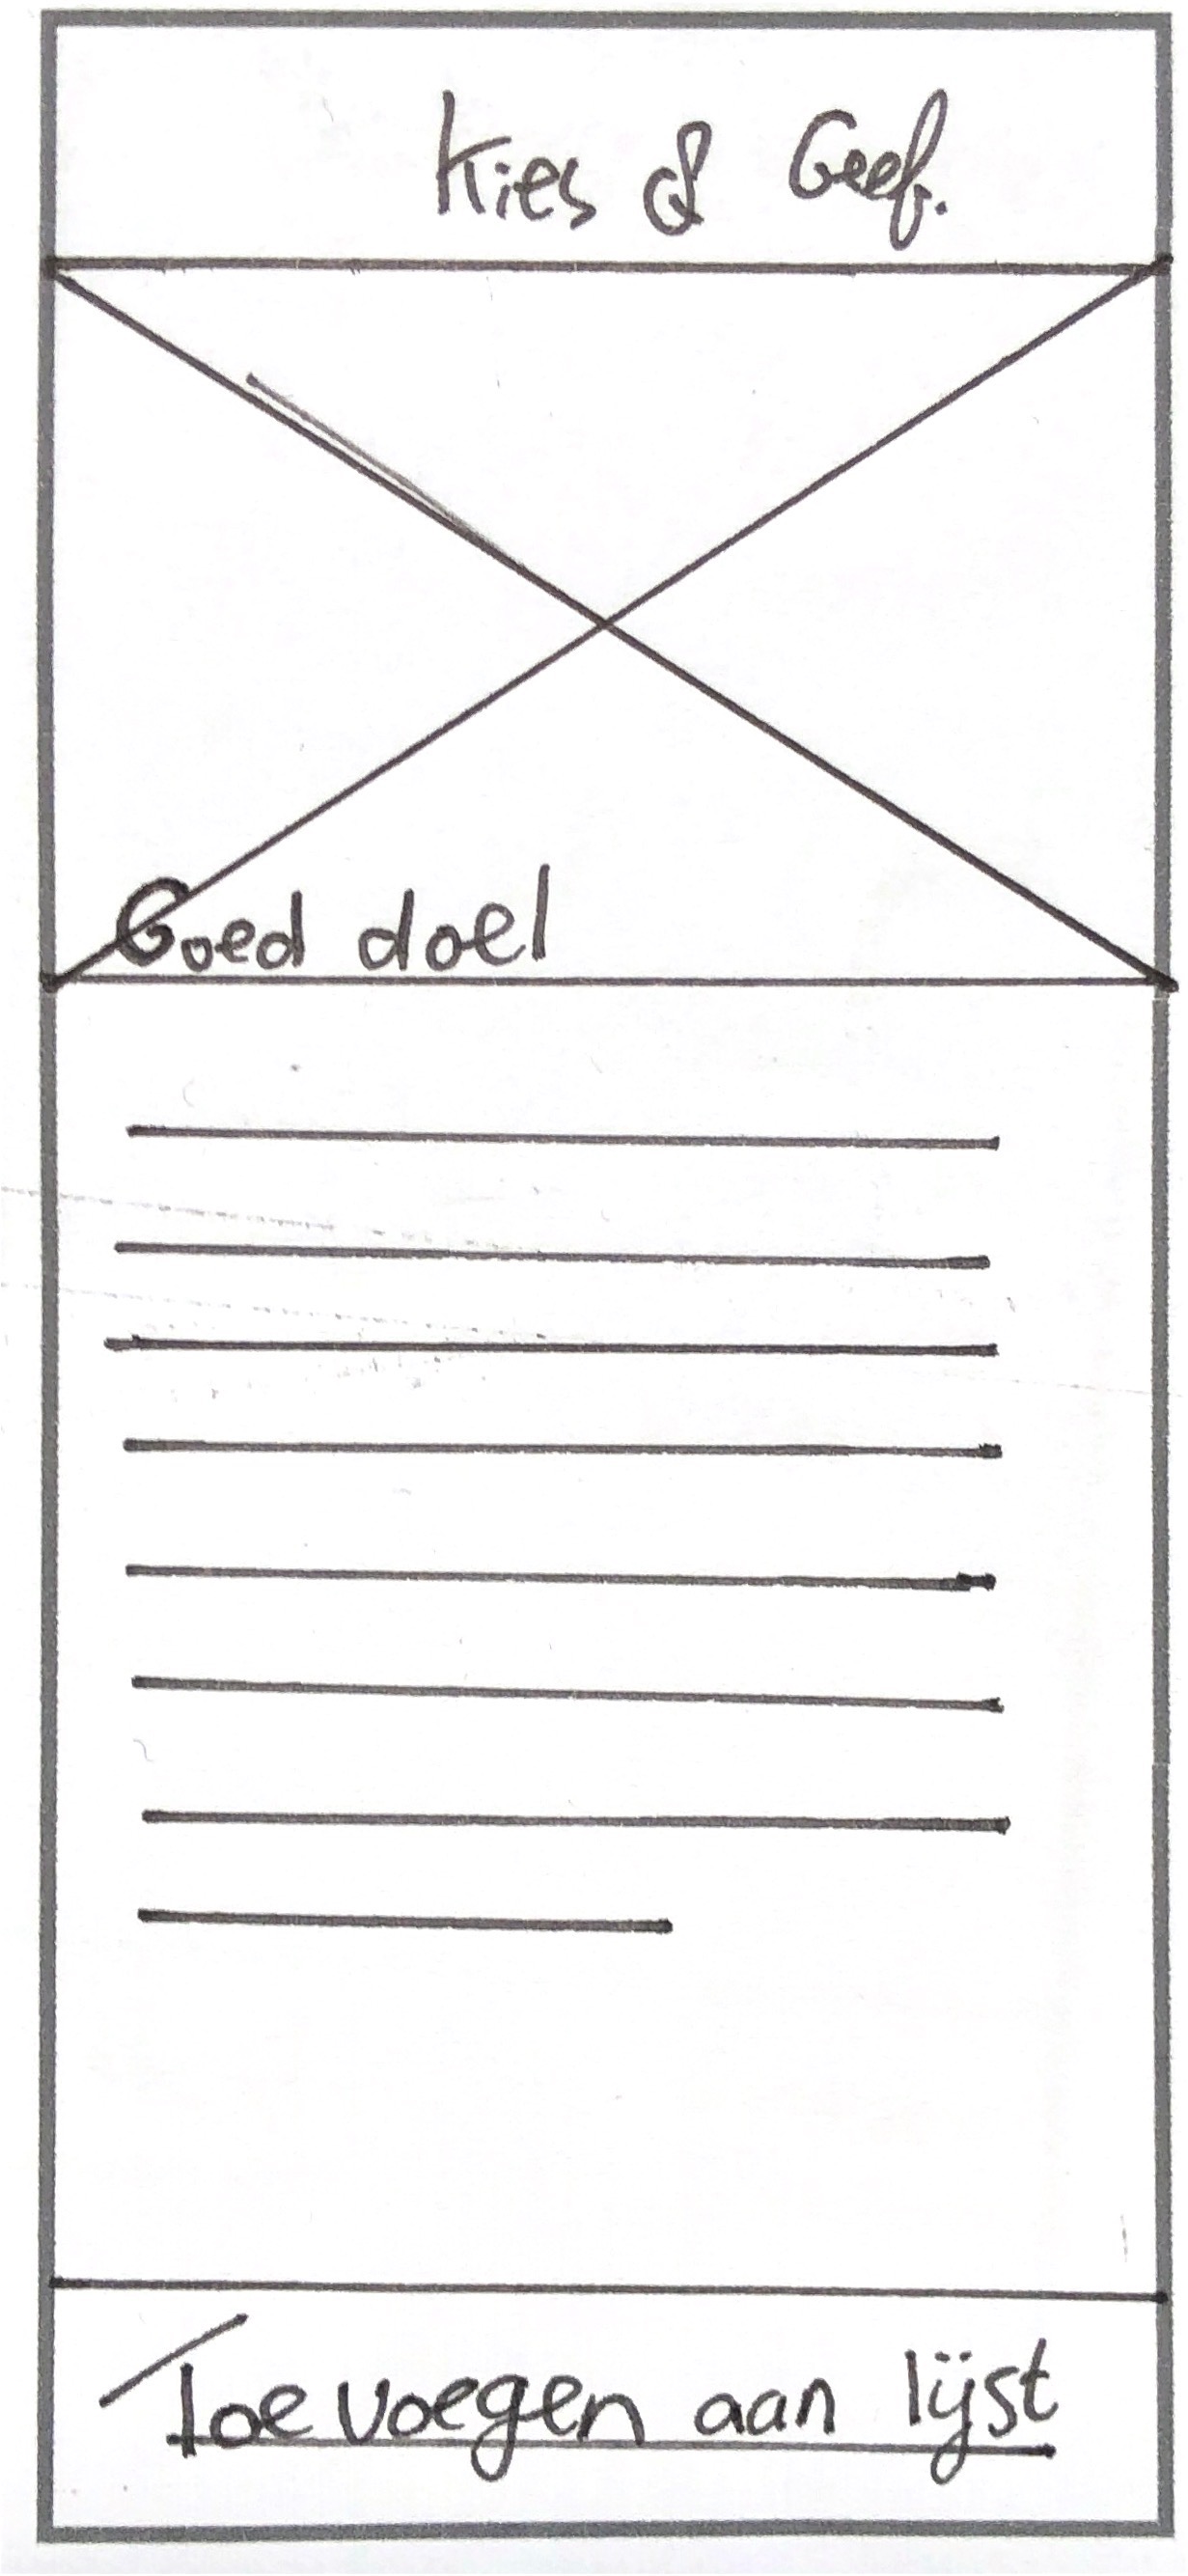 Kies & Geef.
Goed doel
Toevoegen aan lijst